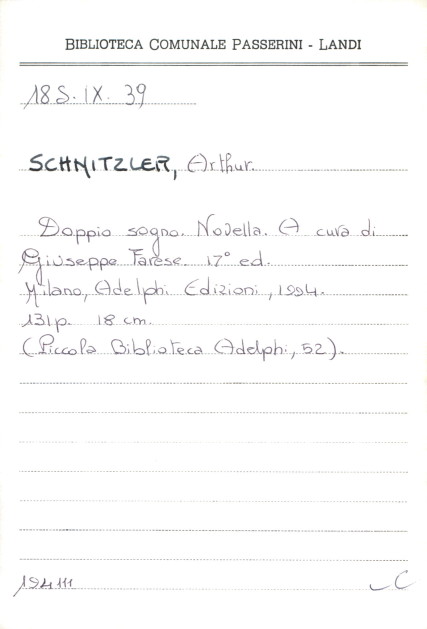 BIBLIOTECA COMUNALE PASSERINI - LANDI
18S. IX. 39
SCHNITZLER, Arthur.
Doppio sogno. Novella. A cura di
Giuseppe Farese. 17° ed.
Milano, Adelphi Edizioni, 1994.
131p. 18 cm.
(Piccola Biblioteca Adelphi, 52).
194111
C